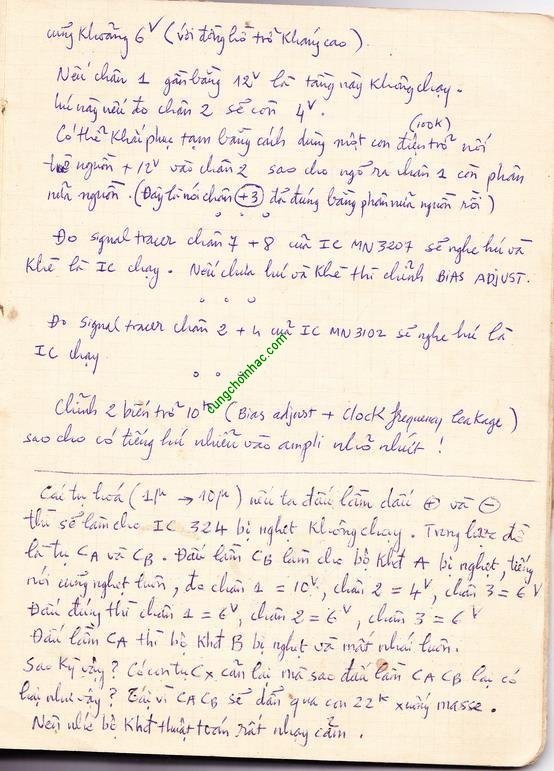 cũng khoảng 6V (với đồng hồ trở kháng cao).
Nếu chân 1 gần bằng 12V là tầng này không chạy.
lúc này nếu đo chân 2 sẽ còn 4V.
(100K)
Có thể khắc phục tạm bằng cách dùng một con điện trở nối
từ nguồn +12V vào chân 2 sao cho ngõ ra chân 1 còn phân
nửa nguồn. (Đây là nói chân (+3) đã đúng bằng phân nửa nguồn rồi)
Đo signal tracer chân 7 + 8 của IC MN3207 sẽ nghe hú và
khè là IC chạy. Nếu chưa hú và khè thì chỉnh BIAS ADJUST.
Đo signal tracer chân 2 + 4 của IC MN3102 sẽ nghe hú là
IC chạy
cungchoinhac.com
Chỉnh 2 biến trở 10K (Bias adjust + Clock frequency leakage)
sao cho có tiếng hú nhiễu vào ampli nhỏ nhứt!
Các tụ hoá (1µ → 10µ) nếu ta đấu lầm dấu ⊕ và ⊖
thì sẽ làm cho IC 324 bị nghẹt không chạy. Trong lược đồ
là tụ CA và CB. Đấu lầm CB làm cho bộ KhĐ A bị nghẹt, tiếng
nói cũng nghẹt luôn, đo chân 1 = 10V, chân 2 = 4V, chân 3 = 6V
Đấu đúng thì chân 1 = 6V, chân 2 = 6V, chân 3 = 6V
Đấu lầm CA thì bộ KhĐ B bị nghẹt và mất nhái luôn.
Sao kỳ vậy? Có con tụ CX cản lại mà sao đấu lầm CA CB lại có
hại như vậy? Tại vì CA CB sẽ dẫn qua con 22K xuống masse.
Nên nhớ bộ KhĐ thuật toán rất nhạy cảm.